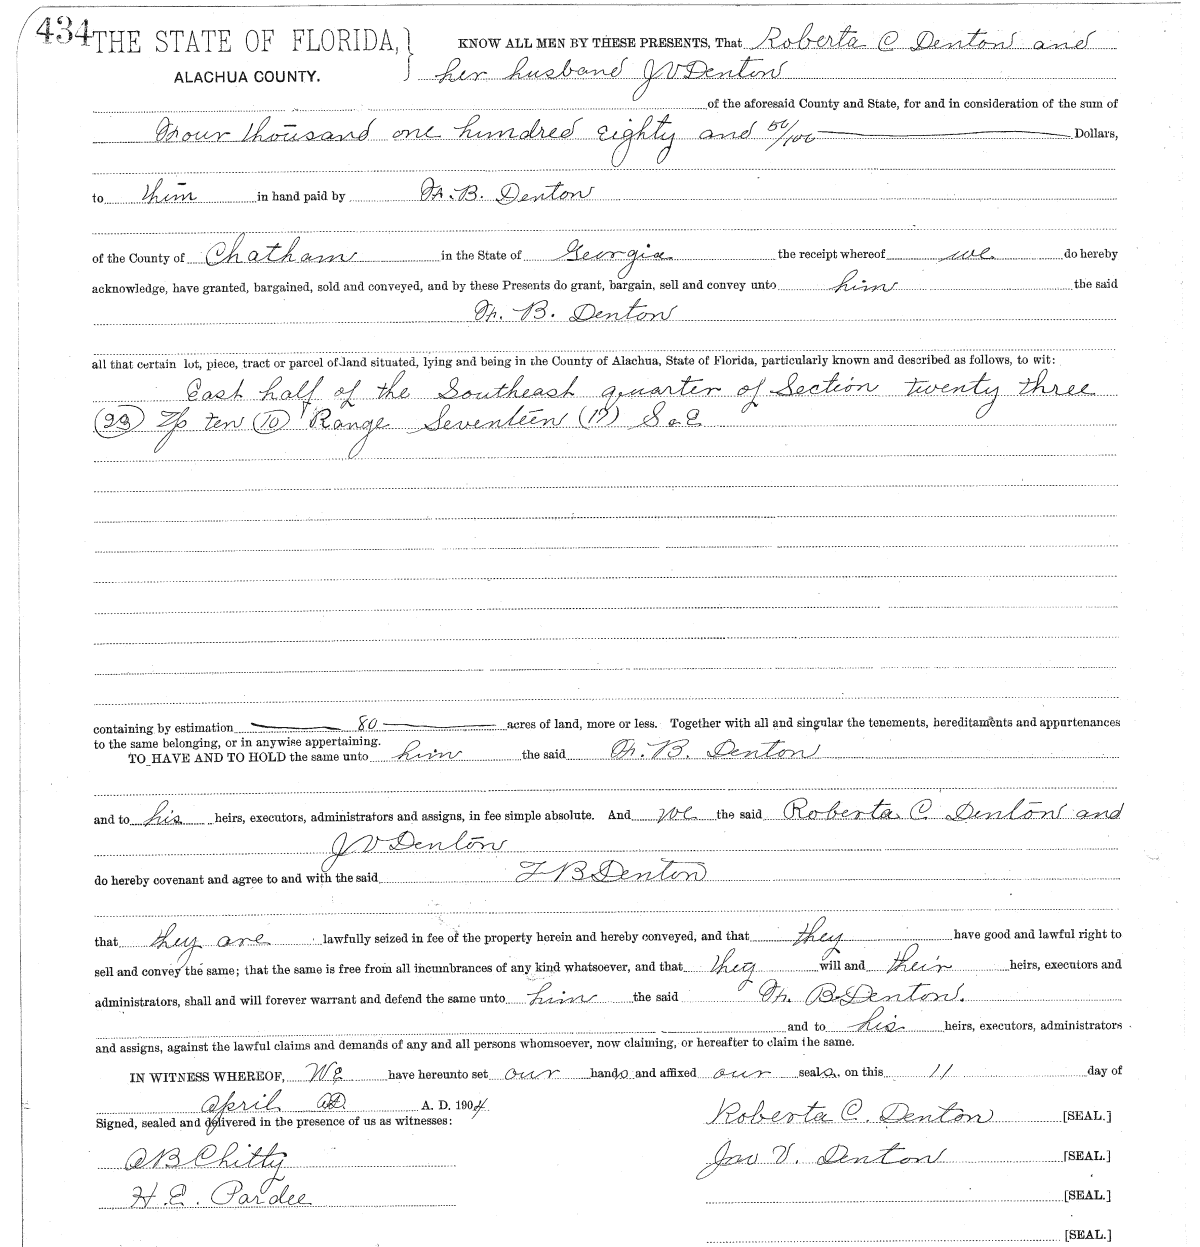 434
THE STATE OF FLORIDA, } KNOW ALL MEN BY THESE PRESENTS, That Roberta C Denton and
ALACHUA COUNTY. her husband J V Denton
of the aforesaid County and State, for and in consideration of the sum of
Four thousand one hundred Eighty and 50/100 Dollars,
to him in hand paid by F. B. Denton
of the County of Chatham in the State of Georgia the receipt whereof we do hereby
acknowledge, have granted, bargained, sold and conveyed, and by these Presents do grant, bargain, sell and convey unto him the said
F. B. Denton
all that certain lot, piece, tract or parcel of land situated, lying and being in the County of Alachua, State of Florida, particularly known and described as follows, to wit:
East half of the Southeast quarter of Section twenty three
(23) Tp ten (10) Range Seventeen (17) S & E
containing by estimation 80 acres of land, more or less. Together with all and singular the tenements, hereditaments and appurtenances
to the same belonging, or in anywise appertaining.
TO HAVE AND TO HOLD the same unto him the said F. B. Denton
and to his heirs, executors, administrators and assigns, in fee simple absolute. And we the said Roberta C Denton and
J V Denton
do hereby covenant and agree to and with the said F B Denton
that they are lawfully seized in fee of the property herein and hereby conveyed, and that they have good and lawful right to
sell and convey the same; that the same is free from all incumbrances of any kind whatsoever, and that they will and their heirs, executors and
administrators, shall and will forever warrant and defend the same unto him the said F. B Denton.
and to his heirs, executors, administrators
and assigns, against the lawful claims and demands of any and all persons whomsoever, now claiming, or hereafter to claim the same.
IN WITNESS WHEREOF, We have hereunto set our hands and affixed our seals, on this 11 day of
April AD A. D. 1904
Signed, sealed and delivered in the presence of us as witnesses:
Roberta C. Denton [SEAL.]
A B Chitty
Jno V. Denton [SEAL.]
H. E. Pardee
[SEAL.]
[SEAL.]